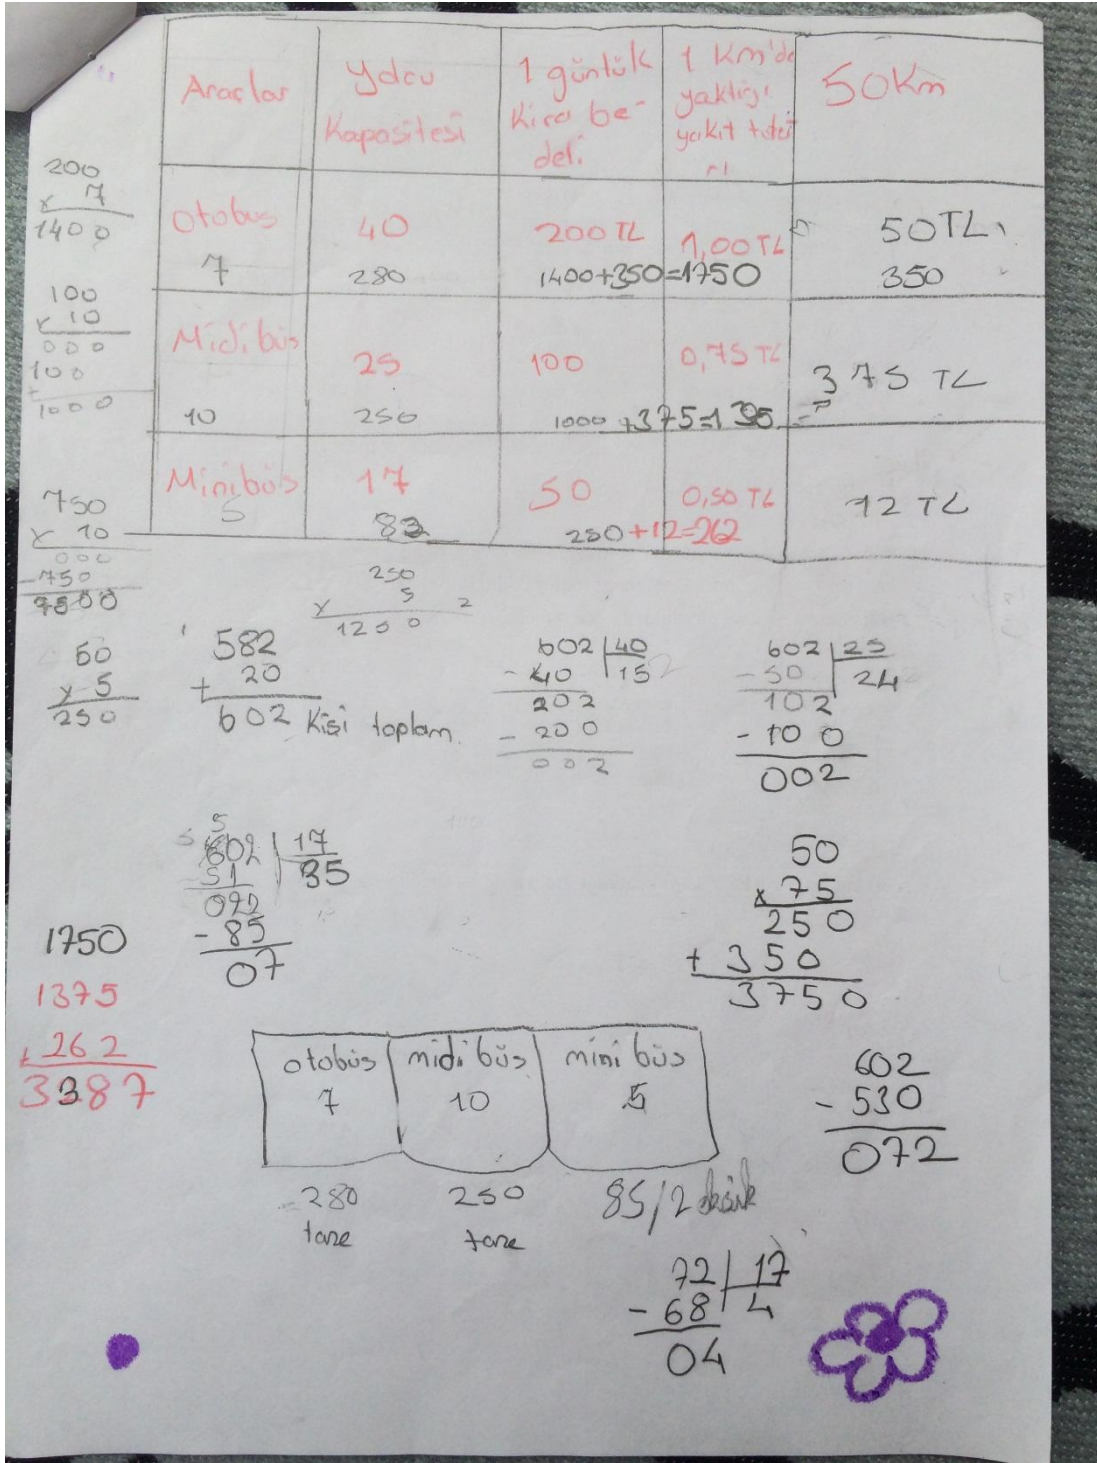 Araçlar
Yolcu
Kapasitesi
1 günlük
Kira be-
deli
1 Km'de
yaktığı
yakıt tuta
rı
50Km
Otobüs
40
200 TL
1,00 TL
50TL
7
280
1400+350=1750
350
Midibüs
25
100
0,75 TL
375 TL
10
250
1000 +375=1375
Minibüs
17
50
0,50 TL
12 TL
5
83
250+12=262
200
x 7
1400
100
x 10
000
100
+
1000
750
x 10
000
-750
7500
50
x 5
250
250
x 5
1250
2
582
+ 20
602 Kişi toplam
602 40
- 40 15
202
- 200
002
602 25
- 50 24
102
- 100
002
602 17
51 35
092
- 85
07
50
x 75
250
+ 350
3750
1750
1375
+ 262
3387
otobüs
7
midibüs
10
minibüs
5
280
tane
250
tane
85/2 eksik
602
- 530
072
72 17
- 68 4
04